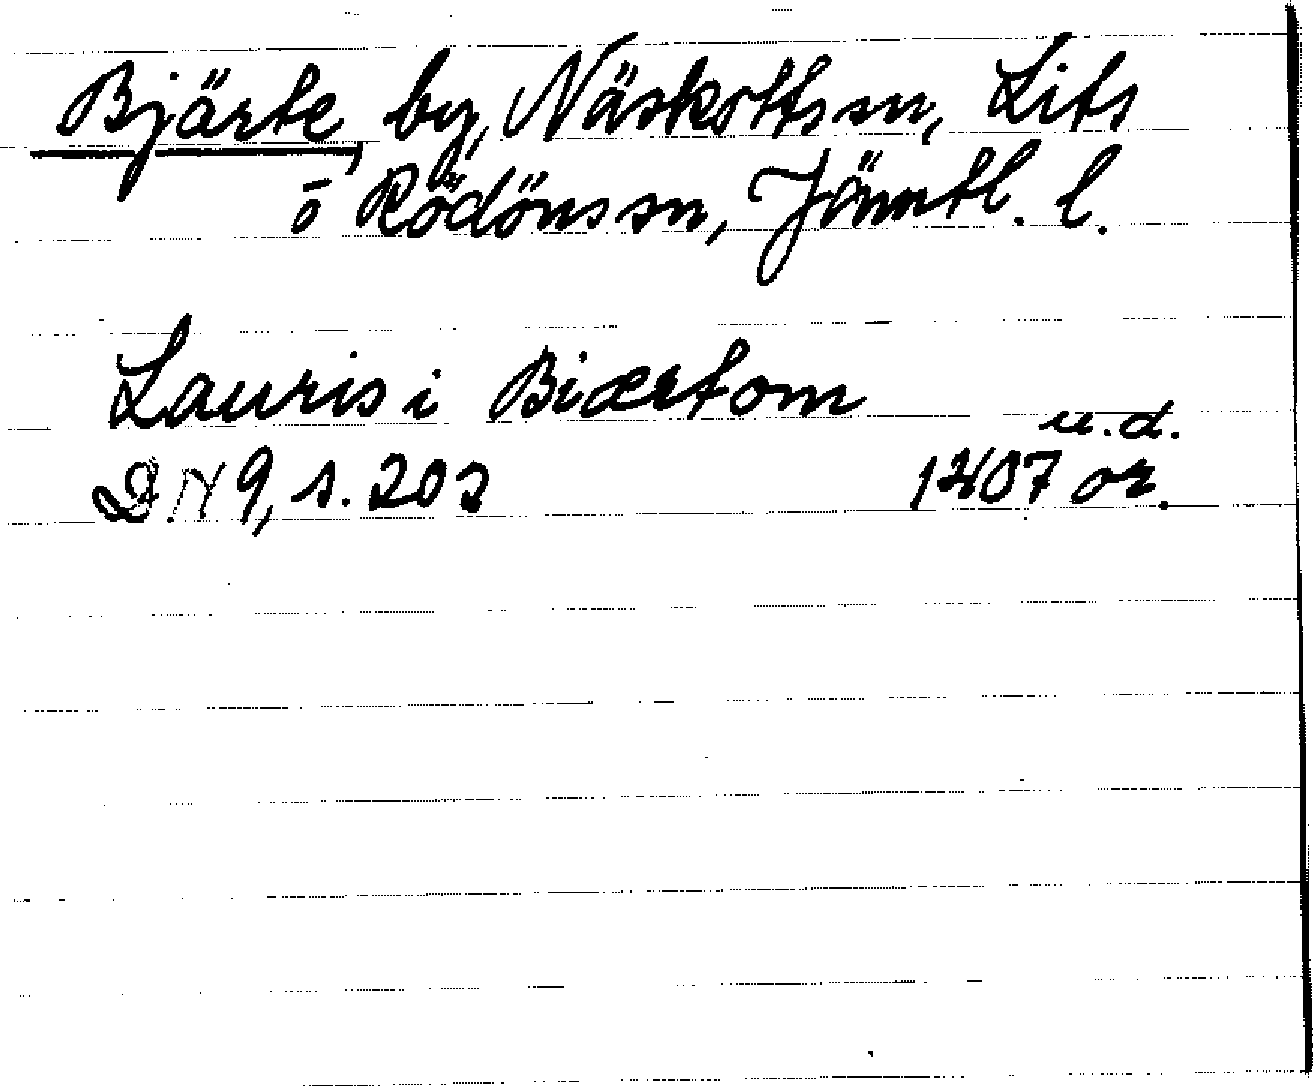 Bjärte, by, Näskotts sn, Lits
o Rödöns sn, Jämtl. l.
Lauris i Biærtom
u.d.
DN 9, s. 202 1407 or.